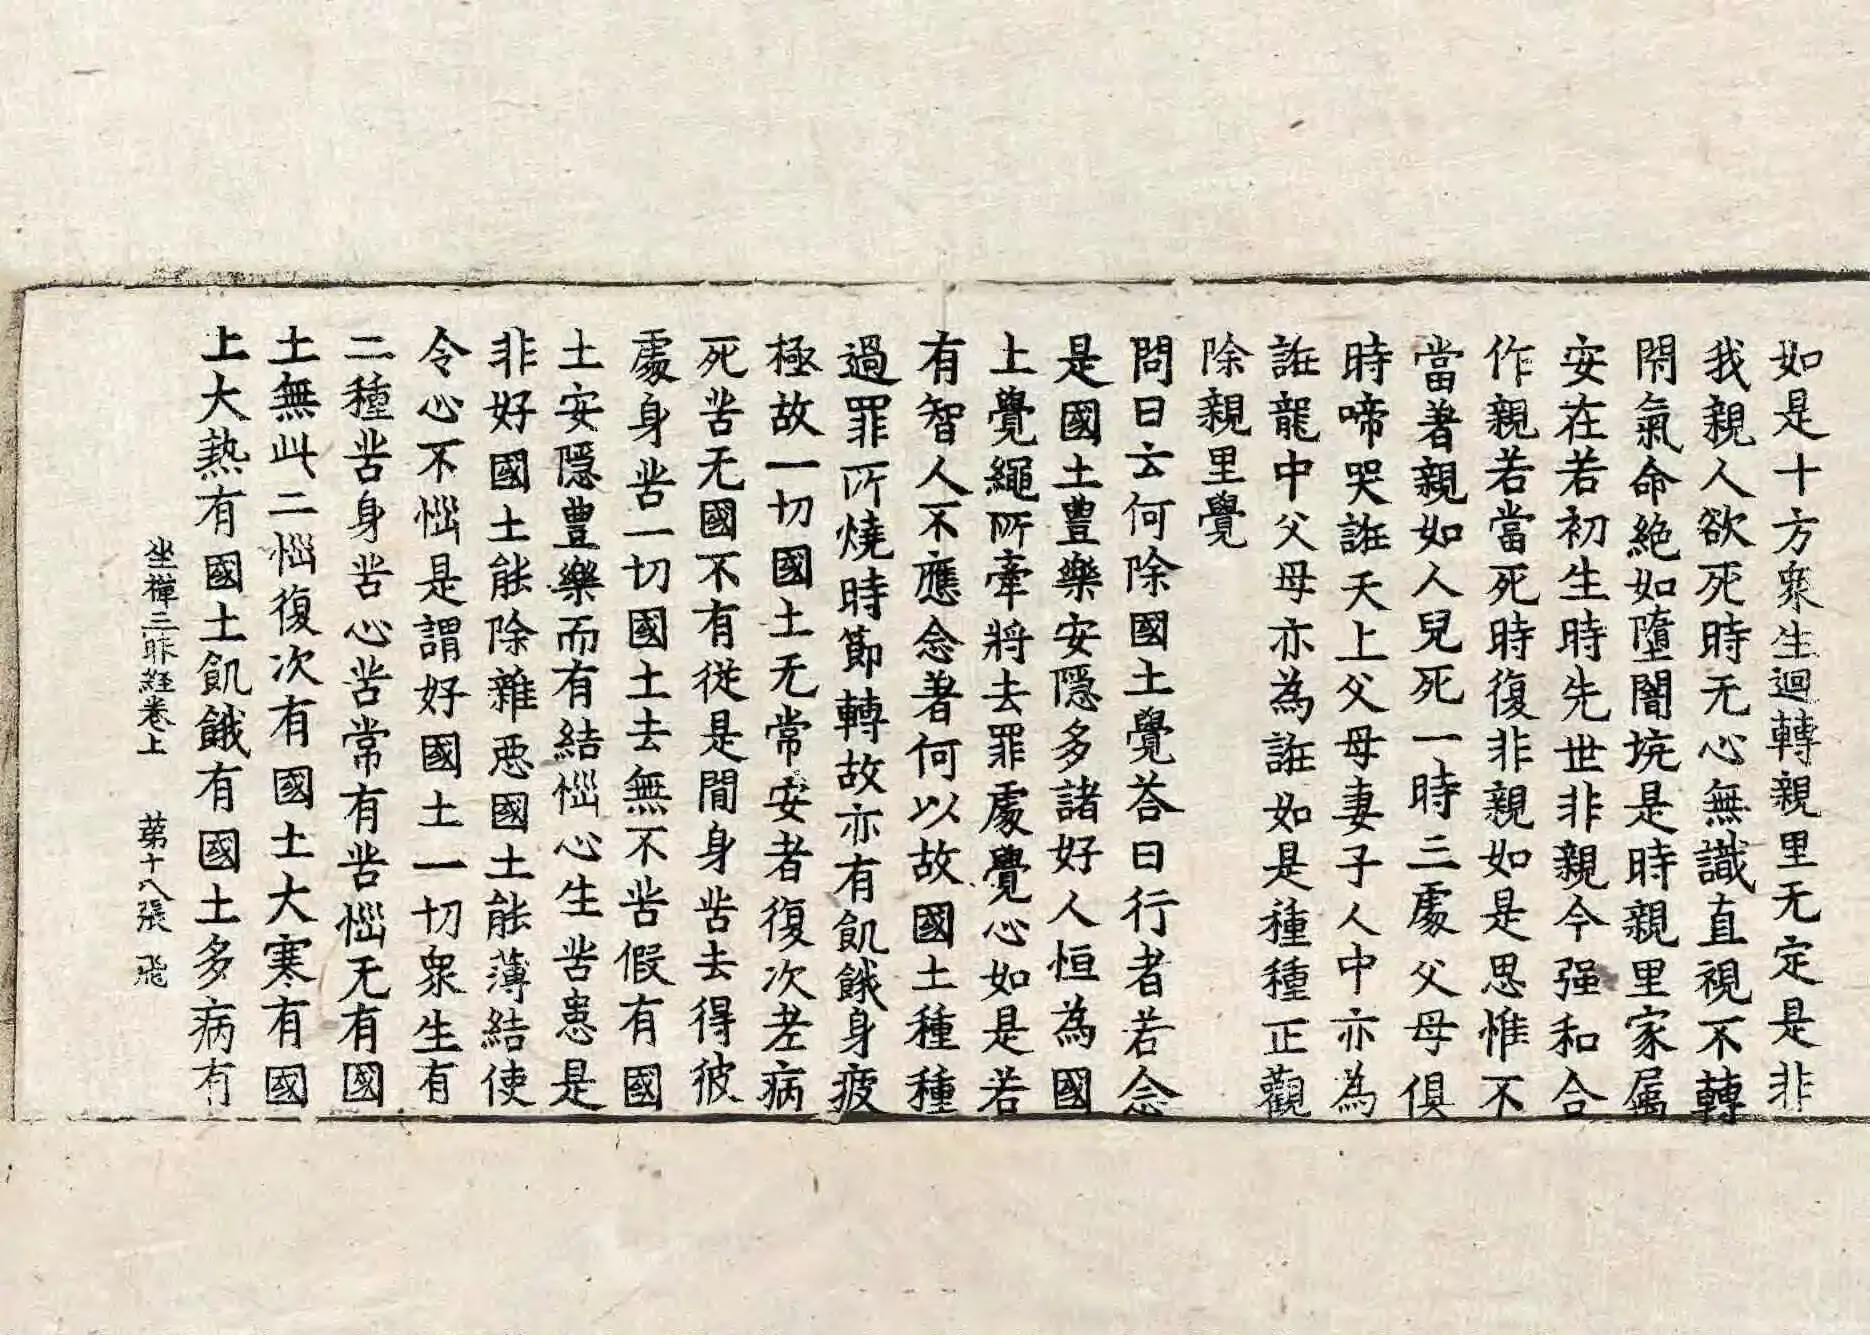 如是十方衆生迴轉親里无定是非
我親人欲死時无心無識直視不轉
閇氣命絶如墮闇坑是時親里家属
安在若初生時先世非親今强和合
作親若當死時復非親如是思惟不
當著親如人兒死一時三處父母俱
時啼哭誑天上父母妻子人中亦為
誑龍中父母亦為誑如是種種正觀
除親里覺
問曰云何除國土覺荅曰行者若念
是國土豊樂安隱多諸好人恒為國
土覺繩所牽將去罪處覺心如是若
有智人不應念著何以故國土種種
過罪所燒時節轉故亦有飢餓身疲
極故一切國土无常安者復次老病
死苦无國不有從是間身苦去得彼
處身苦一切國土去無不苦假有國
土安隱豊樂而有結惱心生苦患是
非好國土能除雜惡國土能薄結使
令心不惱是謂好國土一切衆生有
二種苦身苦心苦常有苦惱无有國
土無此二惱復次有國土大寒有國
土大熱有國土飢餓有國土多病有
坐禪三昧経卷上 第十八張 飛